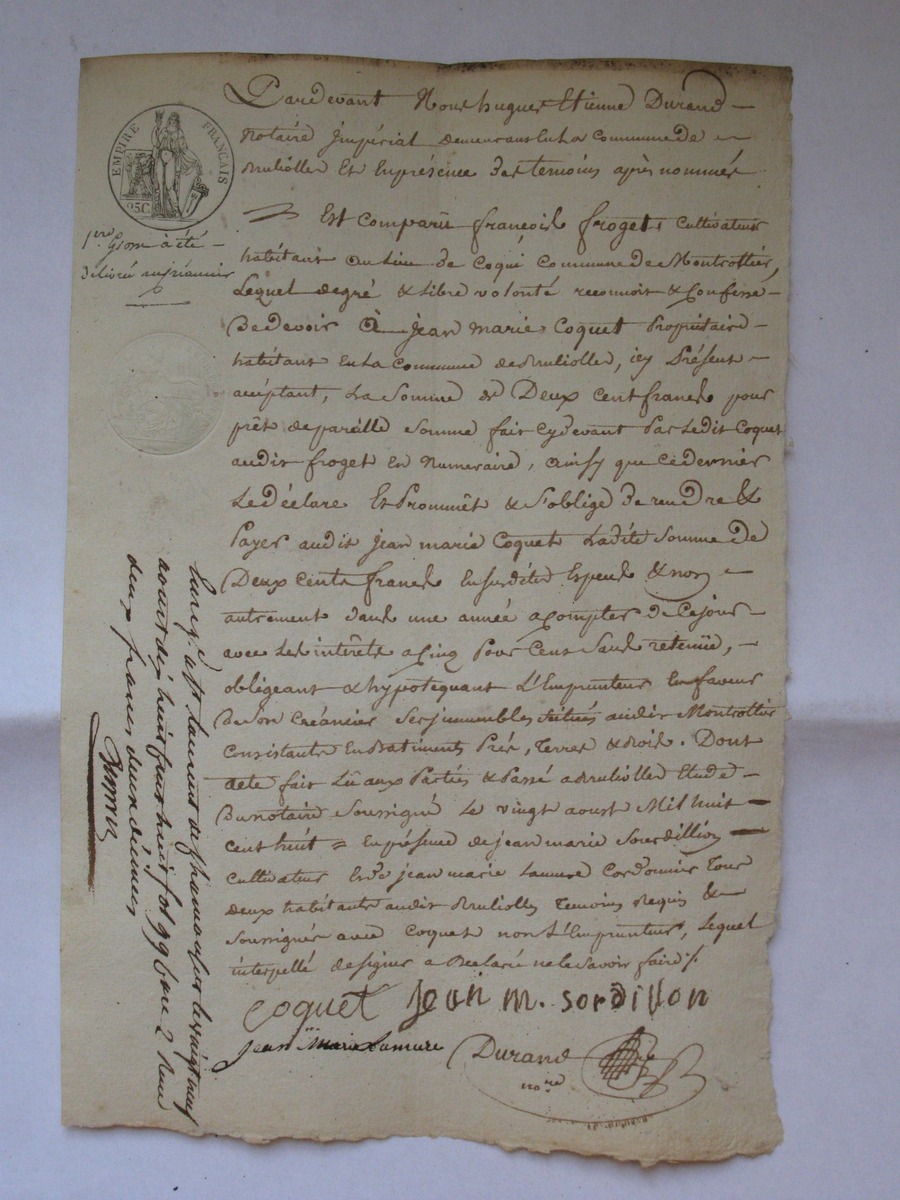 EMPIRE FRANÇAIS
25.C.
1ere Grosse à été
délivré au créancier
Pardevant Nous hugues Etienne Durand
Notaire Impérial demeurant En La Commune de
Brullolles Et En présence des temoins après nommés
Est Comparû françois froget, Cultivateur
habitant au Lieu de Coqui Commune de Montrottier,
Lequel de gré & Libre volonté reconnoit & Confesse
De devoir à Jean Marie Coquet Propriétaire
habitant En La Commune de Brullolles, icy Présent
acceptant, La Somme de Deux Cent francs pour
prêt de pareille Somme fait Cydevant Par Ledit Coquet
audit froget En Numeraire, ainsy que Ce dernier
Le déclare Et Prommêt & S'oblige de rendre &
Payer audit Jean marie Coquet Ladite Somme de
Deux Cents francs En Especes & non
autrement dans une année a Compter de Cejour
avec Les intérêts a Cinq Pour Cent Sans retenüe,
obligeant & hypotequant L'Emprunteur En faveur
De Son Créancier Ses immeubles Situés audit Montrottier
Consistants En Batiments Prés, Terres & Bois. Dont
acte fait Lû aux Parties & Passé a Brullolles Etude
Du notaire Soussigné Le vingt aoust Mil huit
Cent huit = En présence de Jean marie Sourdillion
Cultivateur Et de Jean marie Lamure Cordonnier Tous
deux habitants audit Brullolles Temoins Requis &
Soussignés avec Coquet non L'Emprunteur, Lequel
interpellé de signer a Déclaré ne le Savoir faire /.
Coquet Jean m. sordillon
Jean Marie Lamure Durand
nore
Enreg. à St Laurent de Chamousset le vingt neuf
aoust dix huit cent huit fol 99 Case 2 Reçu
deux francs deux décimes